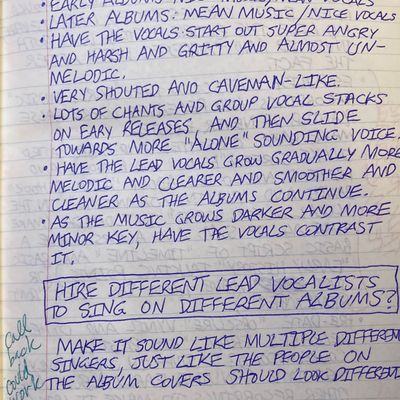 • EARLY ALBUMS: NICE MUSIC/MEAN VOCALS
• LATER ALBUMS: MEAN MUSIC/NICE VOCALS
• HAVE THE VOCALS START OUT SUPER ANGRY
AND HARSH AND GRITTY AND ALMOST UN-
MELODIC.
• VERY SHOUTED AND CAVEMAN-LIKE.
• LOTS OF CHANTS AND GROUP VOCAL STACKS
ON EARY RELEASES, AND THEN SLIDE
TOWARDS MORE "ALONE" SOUNDING VOICE.
• HAVE THE LEAD VOCALS GROW GRADUALLY MORE
MELODIC AND CLEARER AND SMOOTHER AND
CLEANER AS THE ALBUMS CONTINUE.
• AS THE MUSIC GROWS DARKER AND MORE
MINOR KEY, HAVE THE VOCALS CONTRAST
IT.
HIRE DIFFERENT LEAD VOCALISTS
TO SING ON DIFFERENT ALBUMS?
call
back
could
work
MAKE IT SOUND LIKE MULTIPLE DIFFEREN
SINGERS, JUST LIKE THE PEOPLE ON
THE ALBUM COVERS SHOULD LOOK DIFFERENT